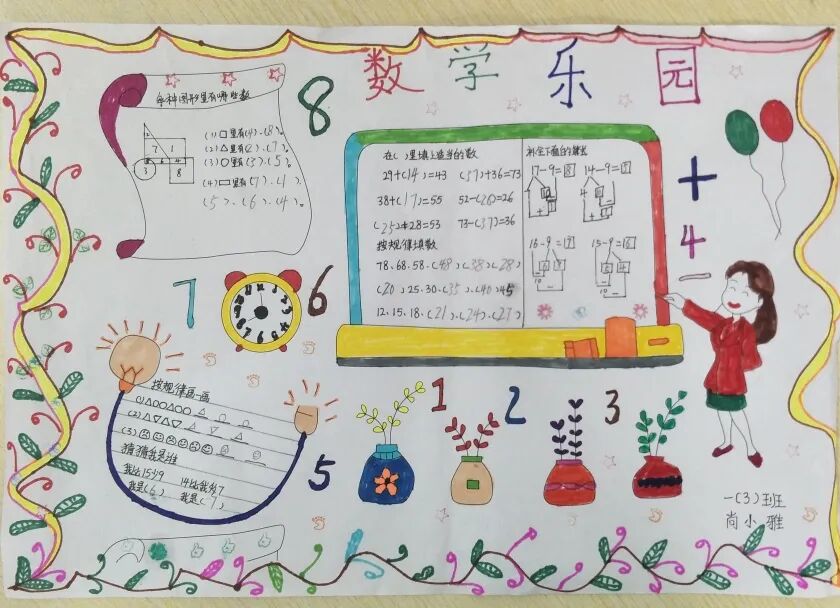 数学乐园
各种图形里有哪些数
2
7 1
8 6 4
3 8
(1)□里有(4)、(8)。
(2)△里有(2)、(7)。
(3)○里有(3)、(5)。
(4)□里有(7)、(1)、
(5)、(6)、(4)。
8
在( )里填上适当的数
29+(14)=43 (37)+36=73
38+(17)=55 52-(26)=26
(25)+28=53 73-(37)=36
按规律填数
78、68、58、(48)、(38)、(28)
(20)、25、30、(35)、(40)、45
12、15、18、(21)、(24)、(27)
17-9=8 14-9=5
16-9=7 15-9=6
+
4
-
7
6
按规律画一画
(1)△○○△○○△○○
(2)△▽△▽△▽△
(3)
猜猜我是谁
我比15少9 14比我多7
我是(6) 我是(7)
5
1
2
3
一(3)班
尚小雅